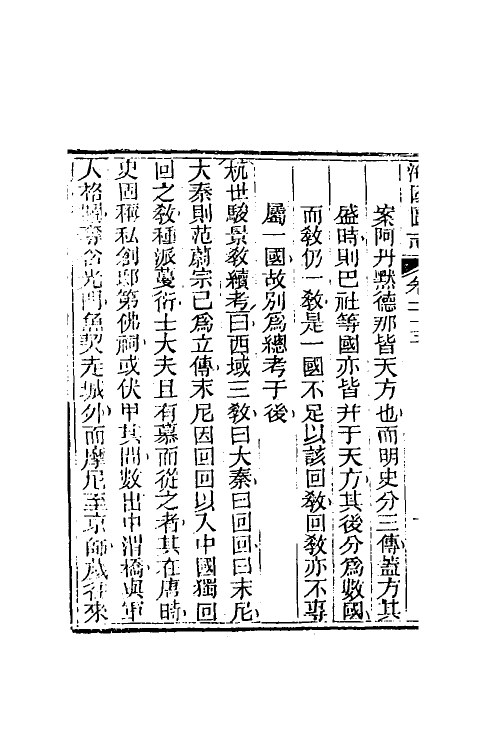 海國圖志 卷二十三
案阿丹默德那皆天方也而明史分三傳蓋方其
盛時則巴社等國亦皆并于天方其後分爲數國
而教仍一教是一國不足以該回教回教亦不專
屬一國故別爲總考于後
杭世駿景教續考曰西域三教曰大秦曰回回曰末尼
大秦則范蔚宗已爲立傳末尼因回回以入中國獨回
回之教種派蔓衍士大夫且有慕而從之者其在唐時
史固稱私創邸第佛祠或伏甲其間數出中渭橋與軍
人格鬭奪含光門魚契走城外而摩尼至京師歲往來